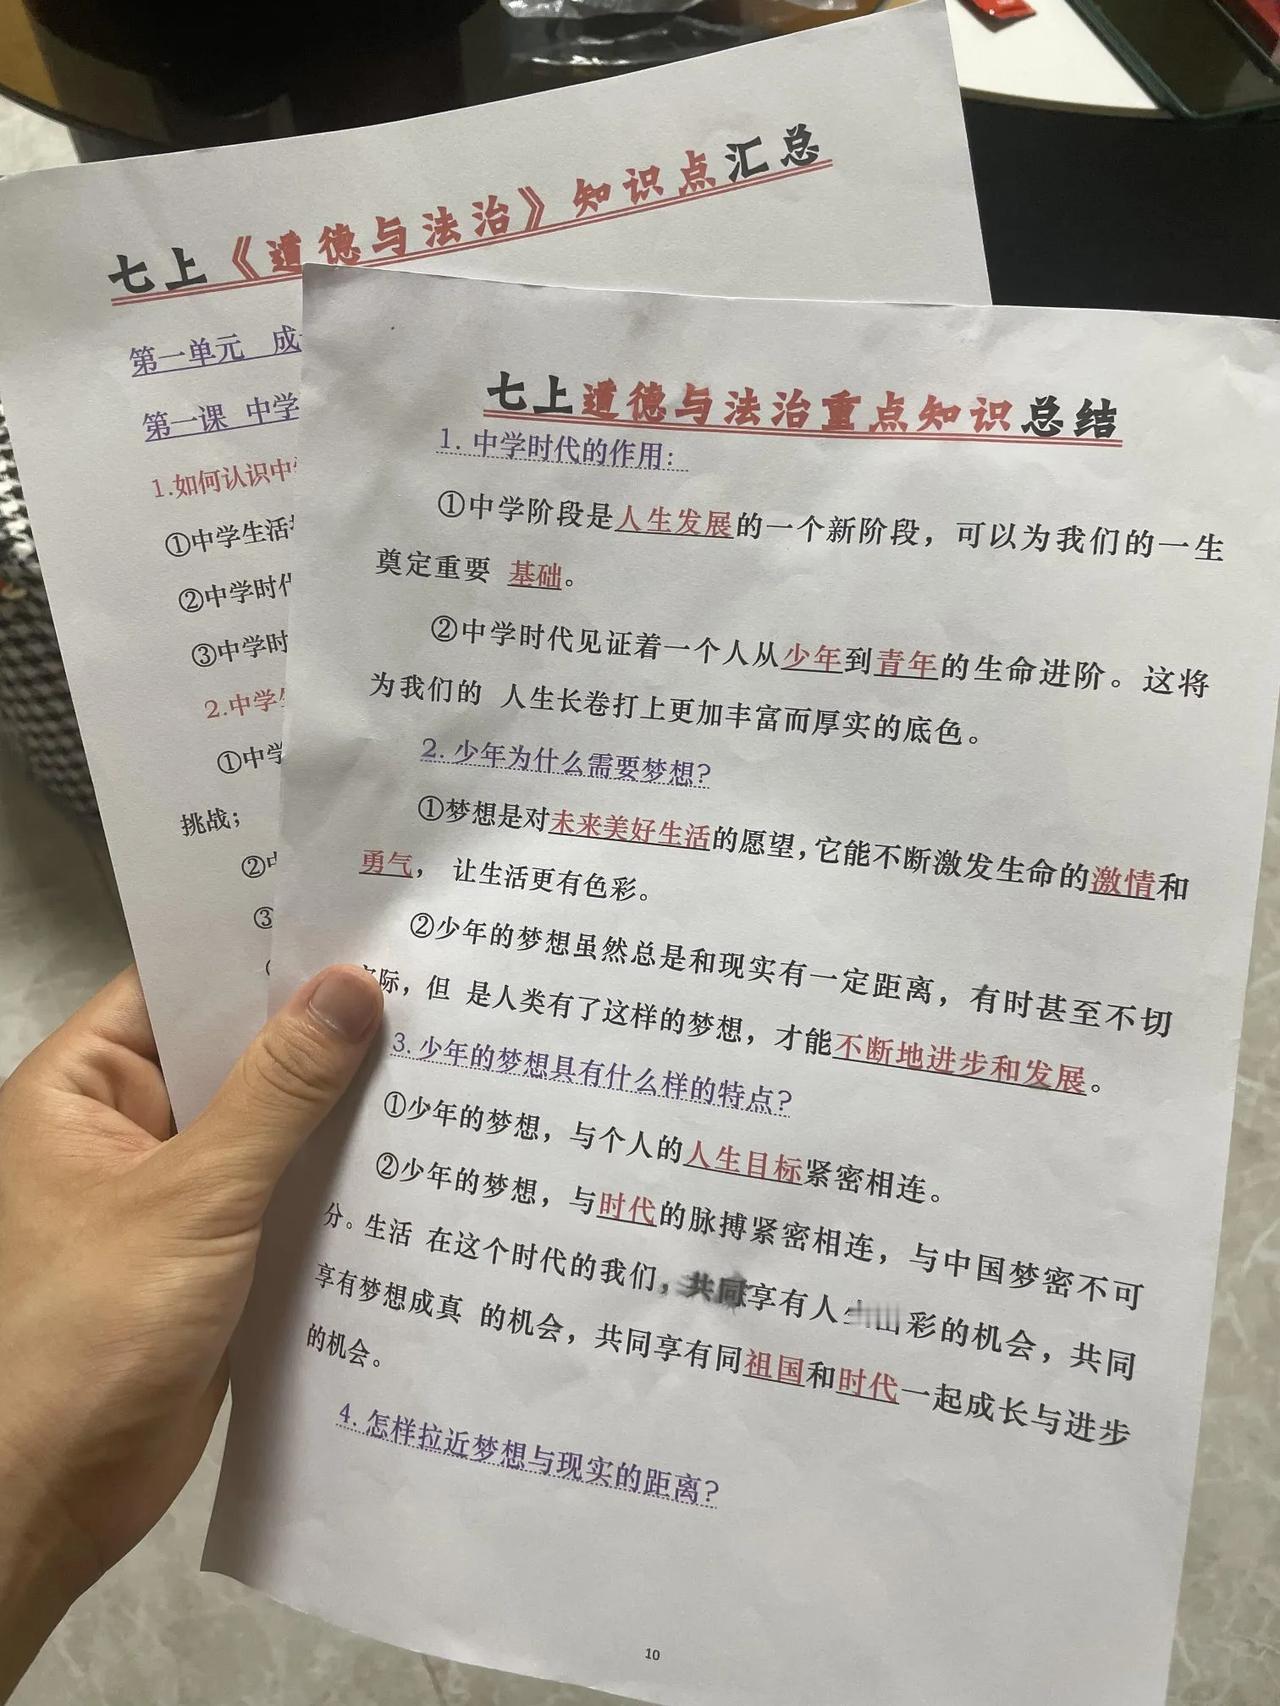 七上《道德与法治》知识点汇总
第一单元 成
第一课 中学
1.如何认识中
①中学生活
②中学时代
③中学时
2.中学
①中学
挑战；
②
③
七上道德与法治重点知识总结
1. 中学时代的作用：
①中学阶段是人生发展的一个新阶段，可以为我们的一生
奠定重要 基础。
②中学时代见证着一个人从少年到青年的生命进阶。这将
为我们的 人生长卷打上更加丰富而厚实的底色。
2. 少年为什么需要梦想？
①梦想是对未来美好生活的愿望，它能不断激发生命的激情和
勇气， 让生活更有色彩。
②少年的梦想虽然总是和现实有一定距离，有时甚至不切
际，但 是人类有了这样的梦想，才能不断地进步和发展。
3. 少年的梦想具有什么样的特点？
①少年的梦想，与个人的人生目标紧密相连。
②少年的梦想，与时代的脉搏紧密相连，与中国梦密不可
分。生活 在这个时代的我们，共同享有人彩的机会，共同
享有梦想成真 的机会，共同享有同祖国和时代一起成长与进步
的机会。
4. 怎样拉近梦想与现实的距离？
10